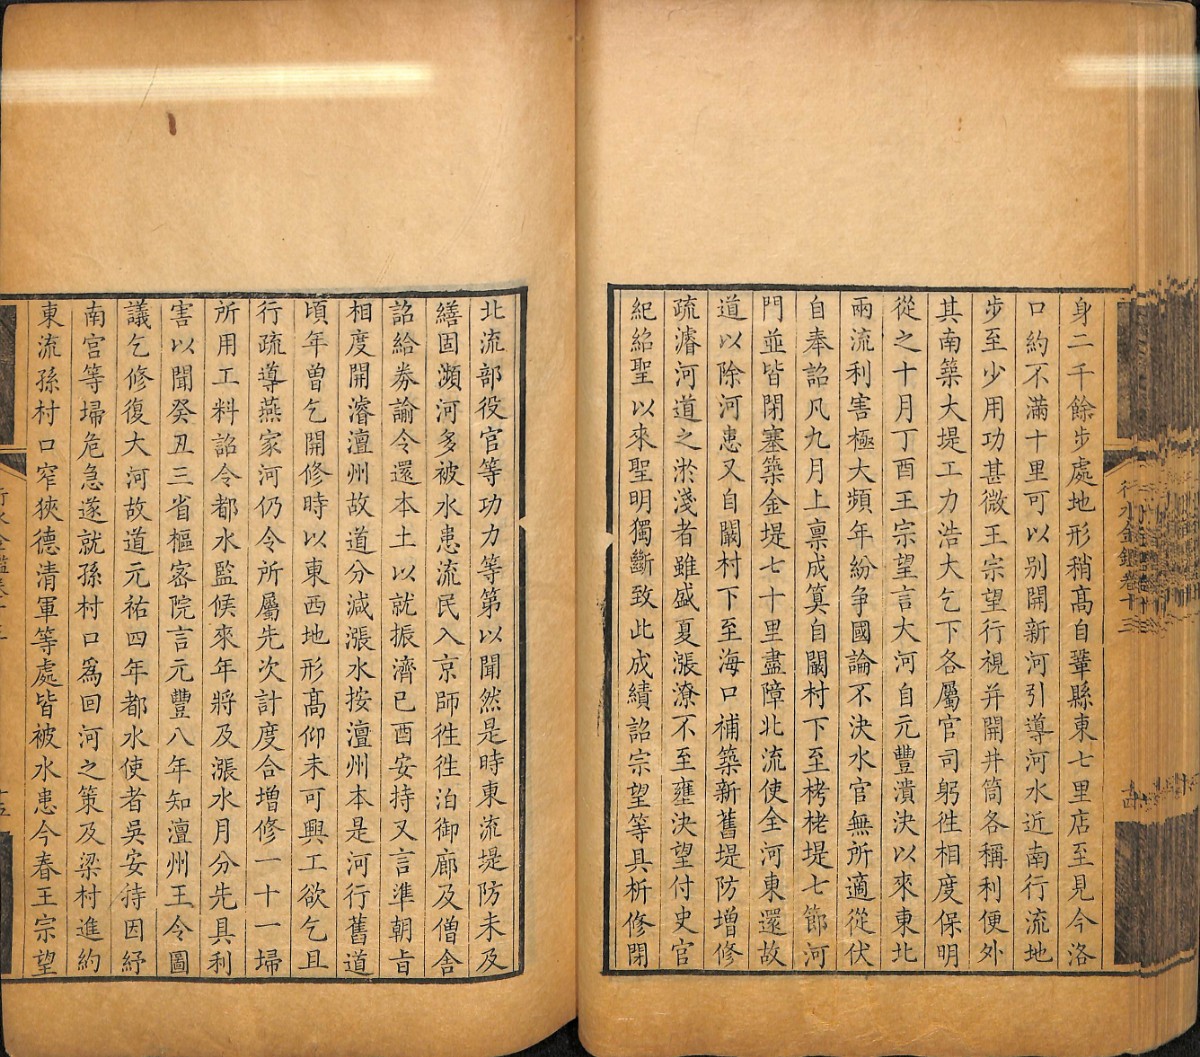 身二千餘步處地形稍髙自鞏縣東七里店至見今洛
口約不滿十里可以别開新河引導河水近南行流地
步至少用功甚微王宗望行視并開井筒各稱利便外
其南築大堤工力浩大乞下各屬官司躬徃相度保明
從之十月丁酉王宗望言大河自元豐潰決以來東北
兩流利害極大頻年紛争國論不決水官無所適從伏
自奉詔凡九月上禀成算自闞村下至栲栳堤七節河
門並皆閉塞築金堤七十里盡障北流使全河東還故
道以除河患又自闞村下至海口補築新舊堤防增修
疏濬河道之淤淺者雖盛夏漲潦不至壅決望付史官
紀紹聖以來聖明獨斷致此成績詔宗望等具析修閉
行水金鑑卷十三
十四
北流部役官等功力等第以聞然是時東流堤防未及
繕固瀕河多被水患流民入京師徃徃泊御廊及僧舍
詔給劵諭令還本土以就振濟已酉安持又言準朝㫖
相度開濬澶州故道分減漲水按澶州本是河行舊道
頃年曽乞開修時以東西地形髙仰未可興工欲乞且
行疏導燕家河仍令所屬先次計度合增修一十一埽
所用工料詔令都水監候來年將及漲水月分先具利
害以聞癸丑三省樞密院言元豐八年知澶州王令圖
議乞修復大河故道元祐四年都水使者吳安持因紓
南宫等埽危急遂就孫村口爲回河之策及梁村進約
東流孫村口窄狹德清軍等處皆被水患今春王宗望
行水金鑑卷十三
十五